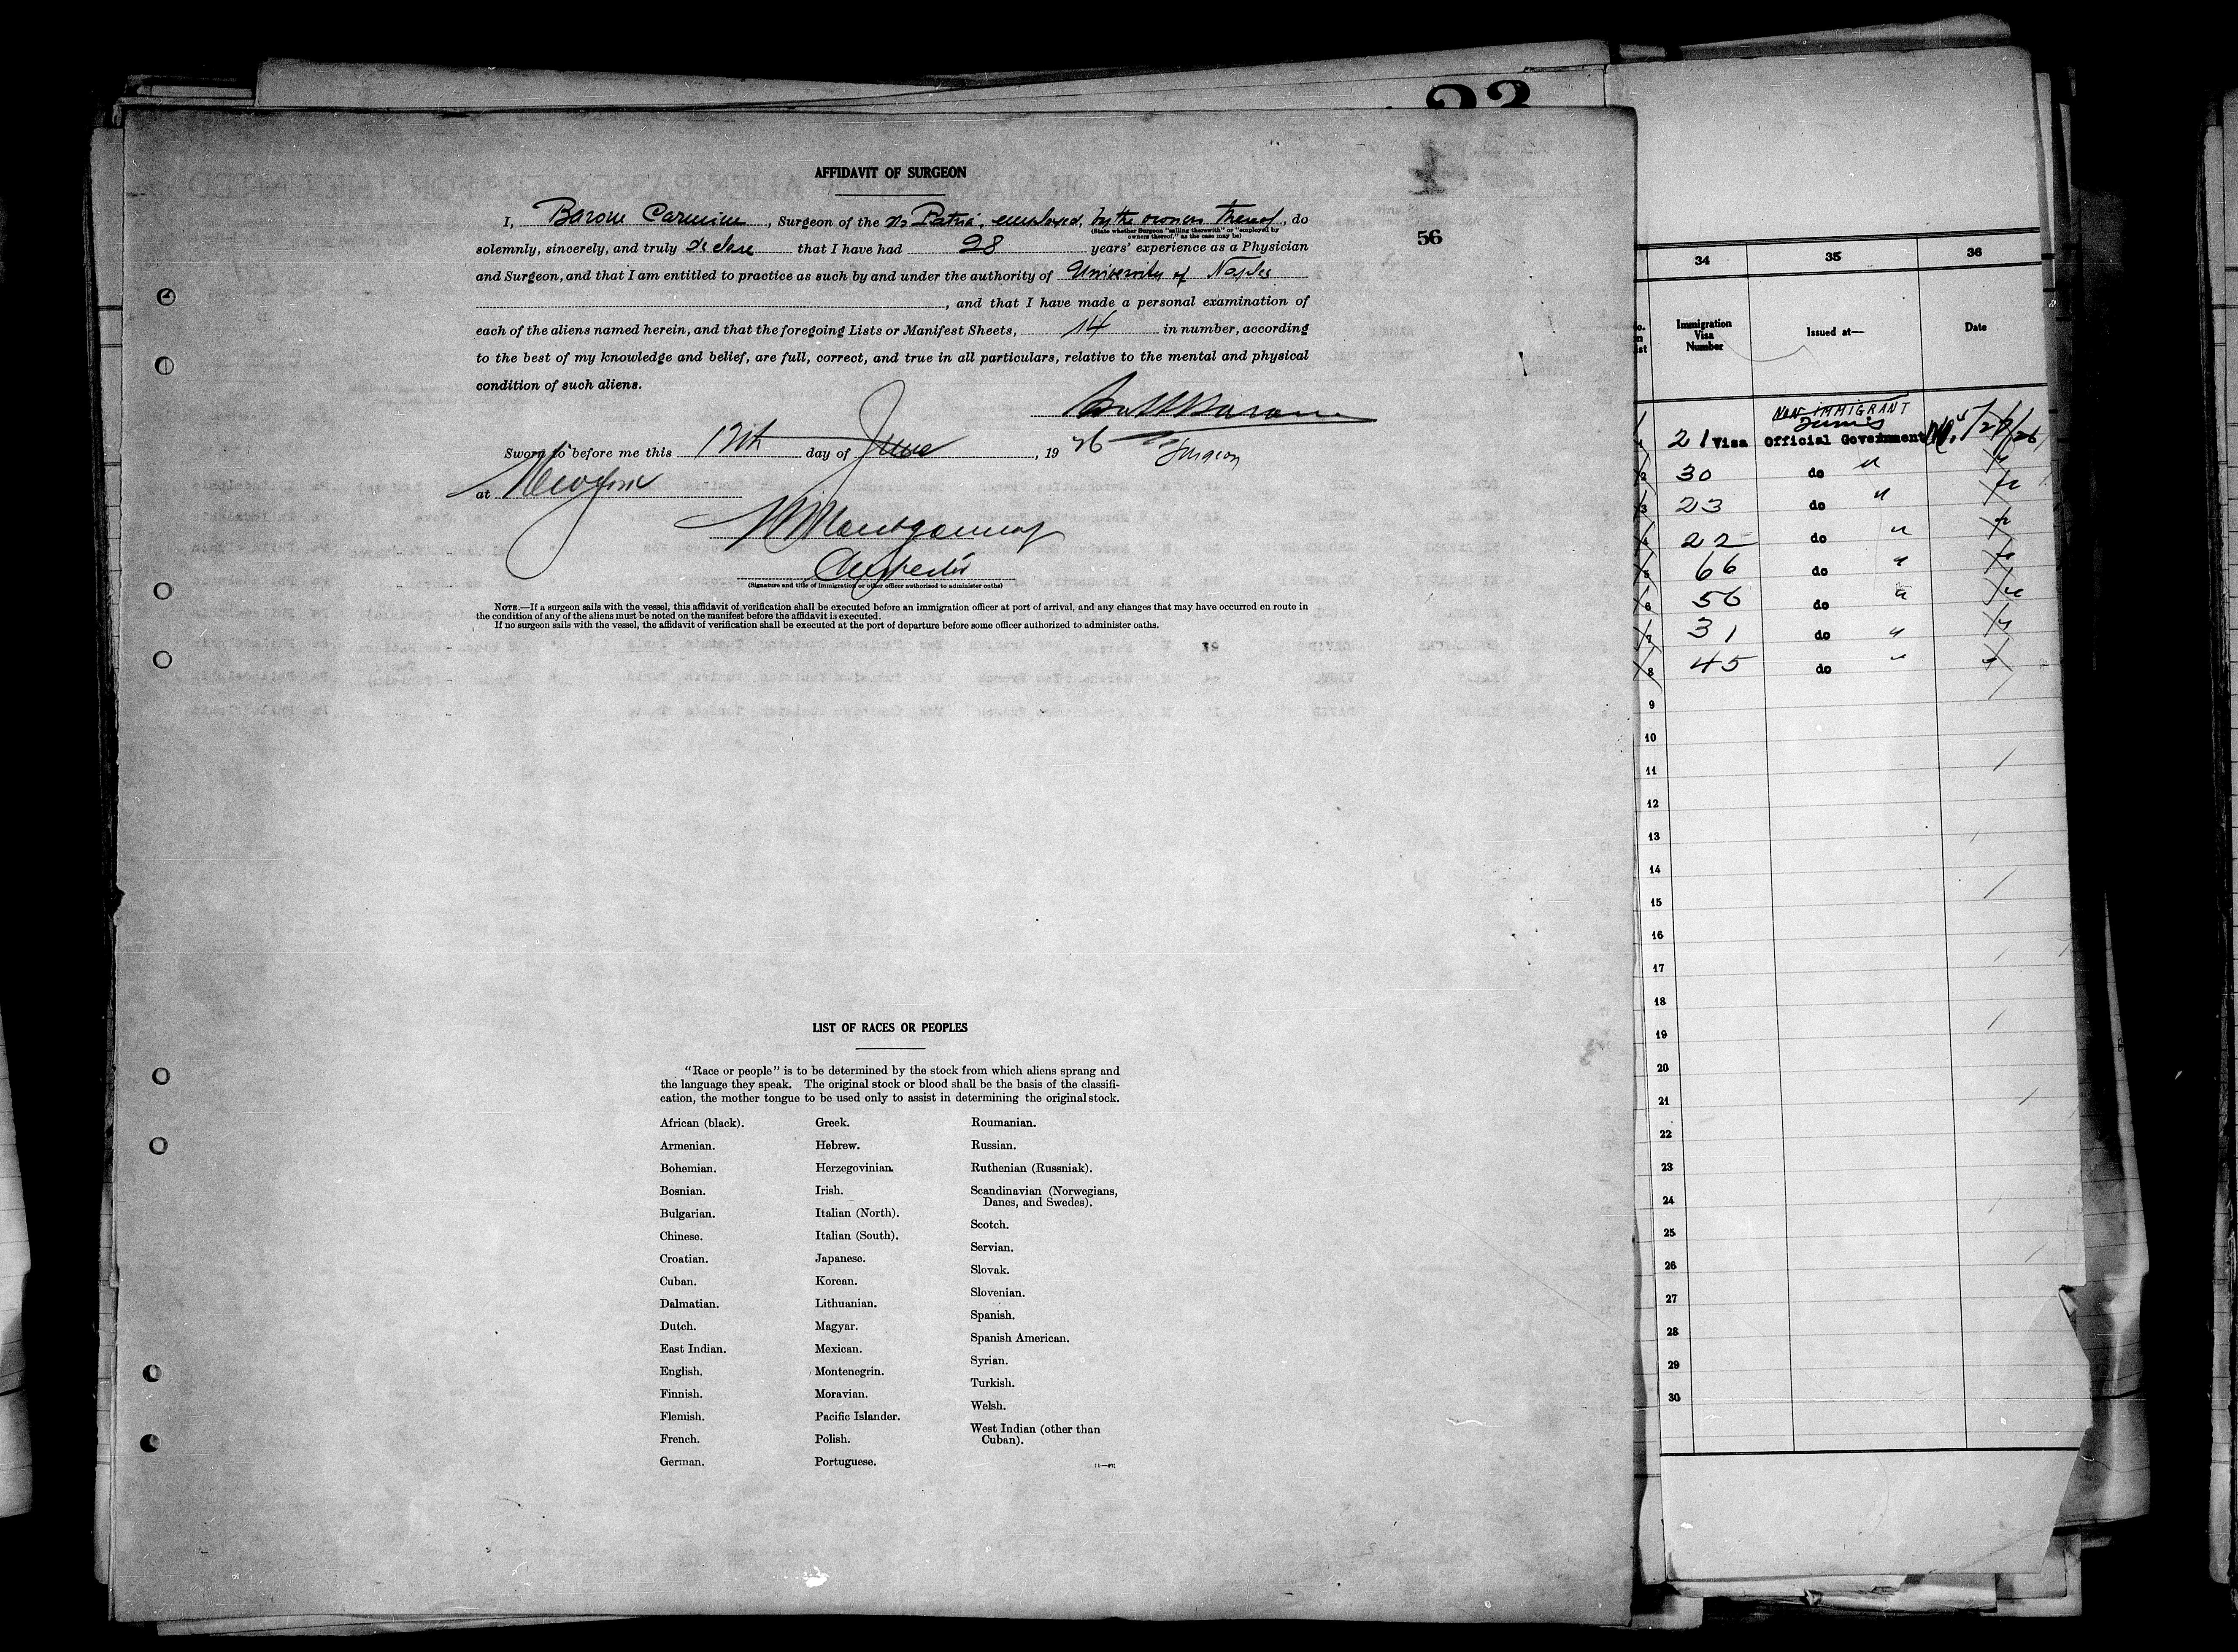 23
AFFIDAVIT OF SURGEON
I, Barone Carmine, Surgeon of the ss Patria, employed, by the owners thereof, do
(State whether Surgeon "sailing therewith" or "employed by
owners thereof," as the case may be)
56
solemnly, sincerely, and truly declare that I have had 28 years' experience as a Physician
and Surgeon, and that I am entitled to practice as such by and under the authority of University of Naples
, and that I have made a personal examination of
each of the aliens named herein, and that the foregoing Lists or Manifest Sheets, 14 in number, according
to the best of my knowledge and belief, are full, correct, and true in all particulars, relative to the mental and physical
condition of such aliens.
Barone
Surgeon
Sworn to before me this 12th day of June, 1926
at New York
Montgomery
Inspector
(Signature and title of immigration or other officer authorized to administer oaths)
NOTE.—If a surgeon sails with the vessel, this affidavit of verification shall be executed before an immigration officer at port of arrival, and any changes that may have occurred on route in
the condition of any of the aliens must be noted on the manifest before the affidavit is executed.
If no surgeon sails with the vessel, the affidavit of verification shall be executed at the port of departure before some officer authorized to administer oaths.
LIST OF RACES OR PEOPLES
"Race or people" is to be determined by the stock from which aliens sprang and
the language they speak. The original stock or blood shall be the basis of the classifi-
cation, the mother tongue to be used only to assist in determining the original stock.
African (black).
Armenian.
Bohemian.
Bosnian.
Bulgarian.
Chinese.
Croatian.
Cuban.
Dalmatian.
Dutch.
East Indian.
English.
Finnish.
Flemish.
French.
German.
Greek.
Hebrew.
Herzegovinian.
Irish.
Italian (North).
Italian (South).
Japanese.
Korean.
Lithuanian.
Magyar.
Mexican.
Montenegrin.
Moravian.
Pacific Islander.
Polish.
Portuguese.
Roumanian.
Russian.
Ruthenian (Russniak).
Scandinavian (Norwegians,
Danes, and Swedes).
Scotch.
Servian.
Slovak.
Slovenian.
Spanish.
Spanish American.
Syrian.
Turkish.
Welsh.
West Indian (other than
Cuban).
34 35 36
Immigration
Visa
Number
Issued at—
Date
NON IMMIGRANT
Tunis
1 21 Visa Official Government
2 30 do "
3 23 do "
4 22 do "
5 66 do "
6 56 do "
7 31 do "
8 45 do "
9
10
11
12
13
14
15
16
17
18
19
20
21
22
23
24
25
26
27
28
29
30